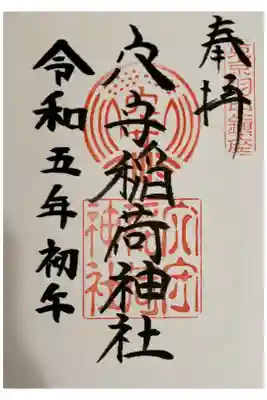 奉拝
東京羽田鎮座
穴守稲荷神社
穴守稲荷神社
令和五年初午